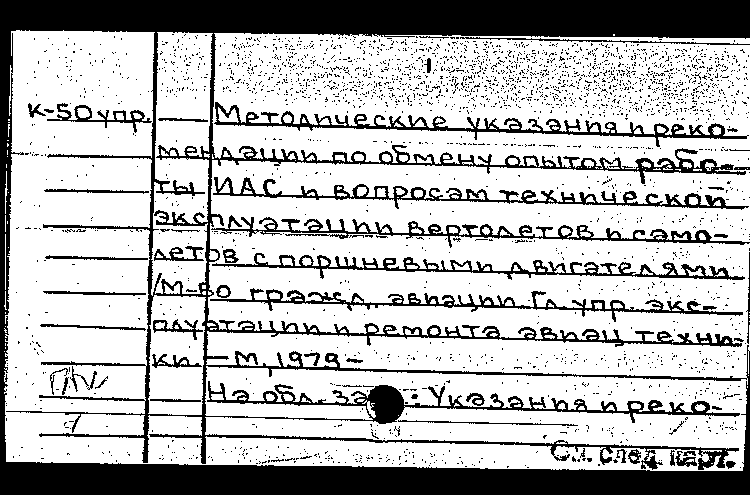 1
К-50 упр. Методические указания и реко-
мендации по обмену опытом рабо-
ты ИАС и вопросам технической
эксплуатации вертолетов и само-
летов с поршневыми двигателями
/М-во гражд. авиации. Гл. упр. экс-
плуатации и ремонта авиац. техни-
ки. — М., 1979 -
На обл. : Указания и реко-
См. след. карт.